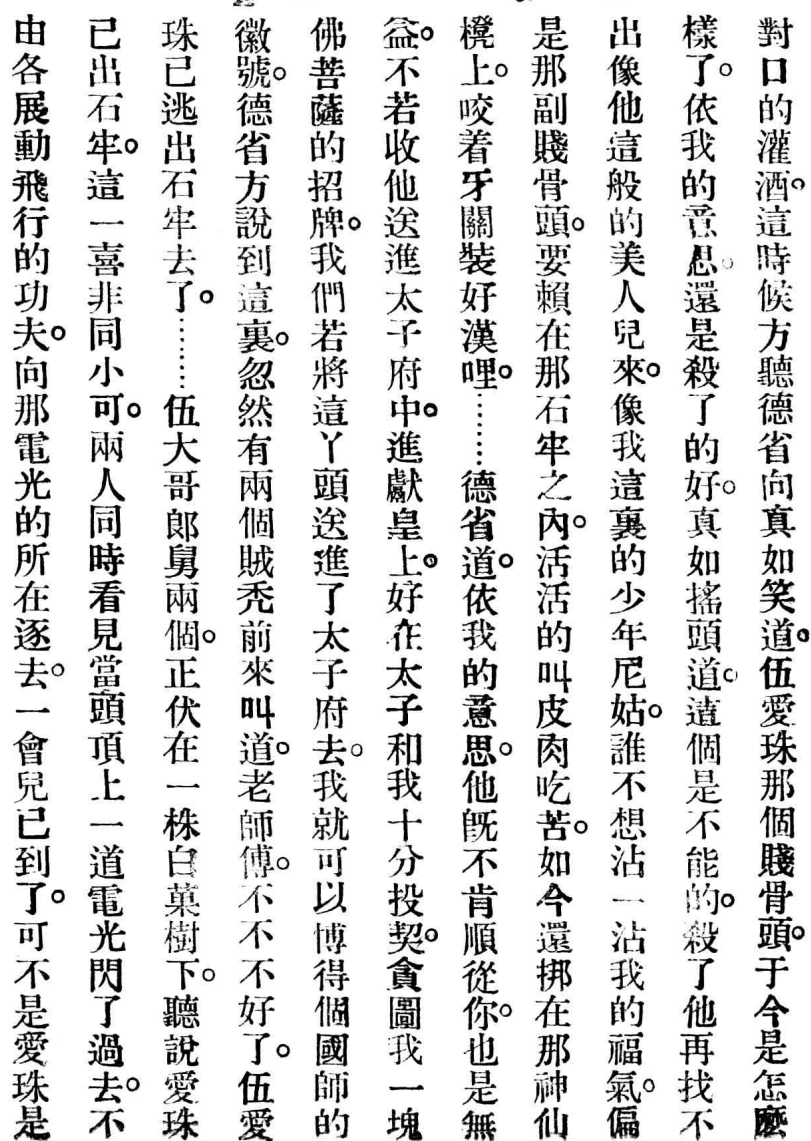 對口的灌酒。這時候方聽德省向真如笑道。伍愛珠那個賤骨頭。于今是怎麼
樣了。依我的意思。還是殺了的好。真如搖頭道。這個是不能的。殺了他再找不
出像他這般的美人兒來。像我這裏的少年尼姑。誰不想沾一沾我的福氣。偏
是那副賤骨頭。要賴在那石牢之內。活活的叫皮肉吃苦。如今還挷在那神仙
櫈上。咬着牙關裝好漢哩。………德省道。依我的意思。他旣不肯順從你。也是無
益。不若收他送進太子府中。進獻皇上。好在太子和我十分投契。貪圖我一塊
佛菩薩的招牌。我們若將這丫頭送進了太子府去。我就可以博得個國師的
徽號。德省方說到這裏。忽然有兩個賊禿前來叫道。老師傅。不不不好了。伍愛
珠已逃出石牢去了。………伍大哥郎舅兩個。正伏在一株白菓樹下。聽說愛珠
已出石牢。這一喜非同小可。兩人同時看見當頭頂上一道電光閃了過去。不
由各展動飛行的功夫。向那電光的所在逐去。一會兒已到了。可不是愛珠是